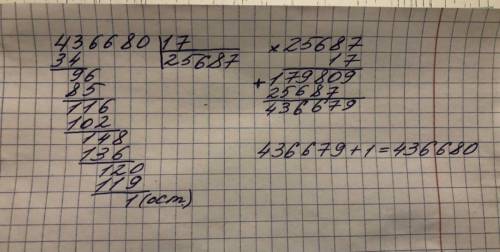 436680 17
34 25687
96
85
116
102
148
136
120
119
1 (ост)
× 25687
17
+ 179809
25687
436679
436679 + 1 = 436680